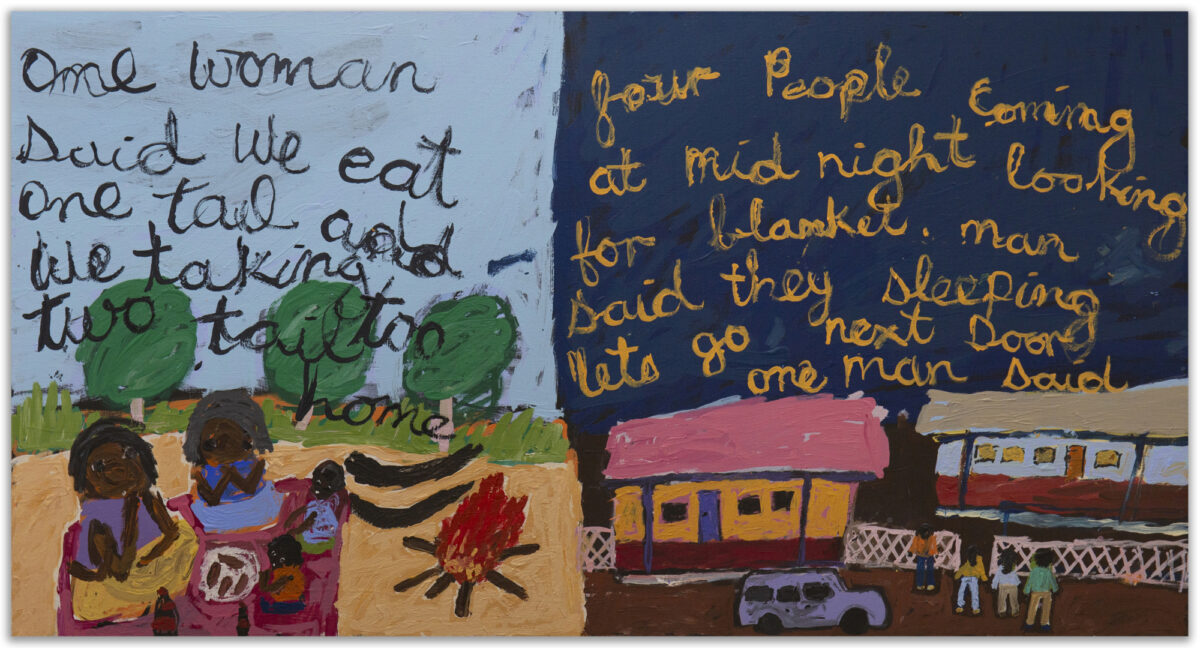 one woman
said We eat
one tail and
We taking
two tail too
home
four People Coming
at mid night looking
for blanket. man
said they sleeping
lets go next Door
one man said